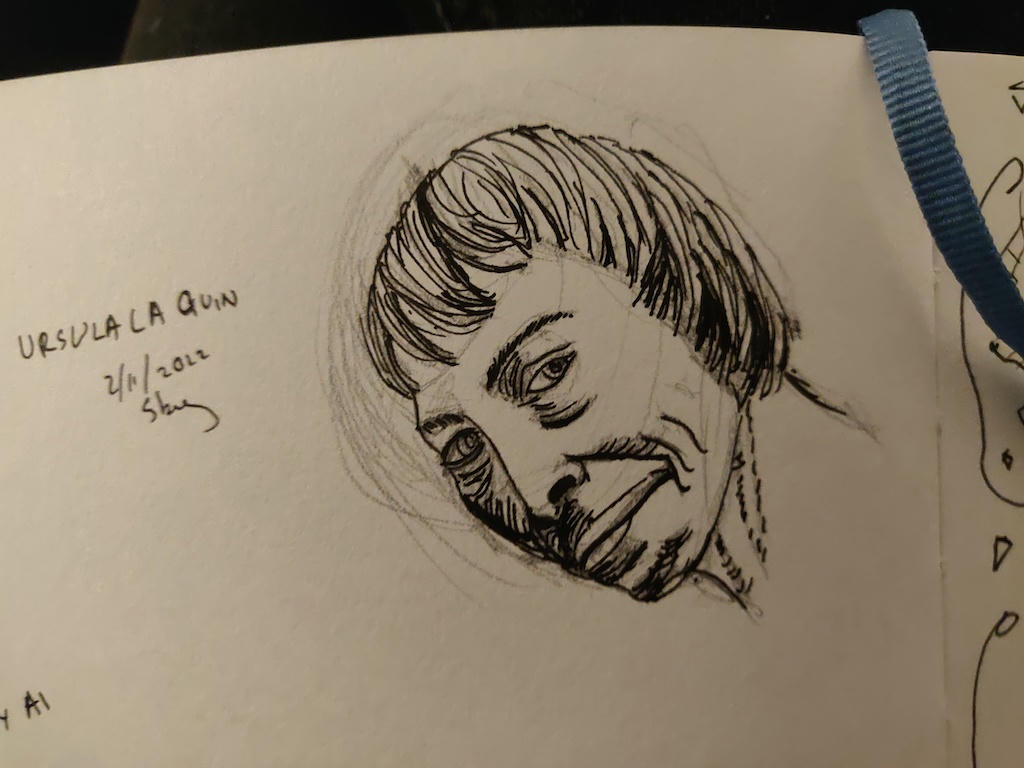 URSULA LA GUIN
2/11/2022
AI